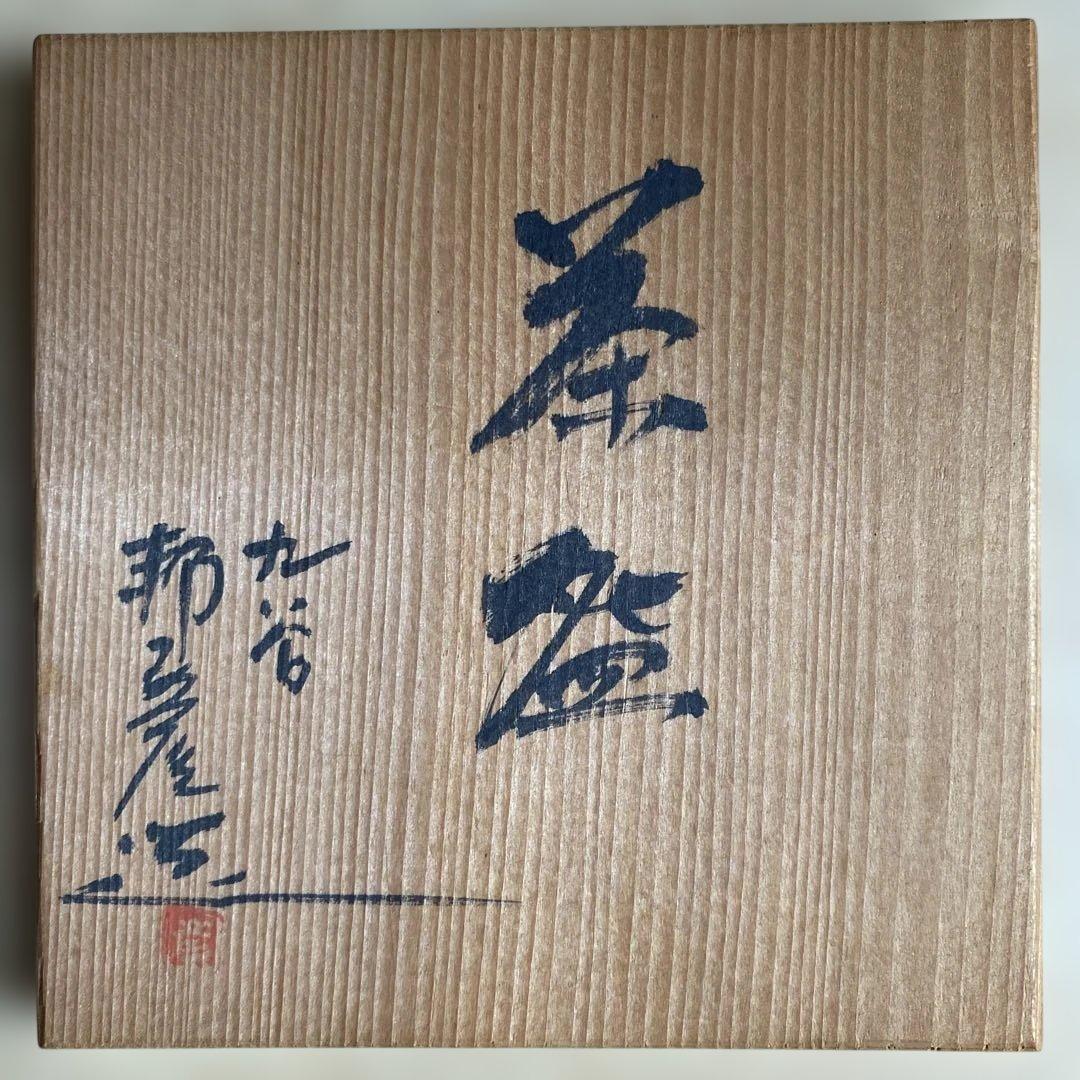 茶盌
九谷
邦彦造